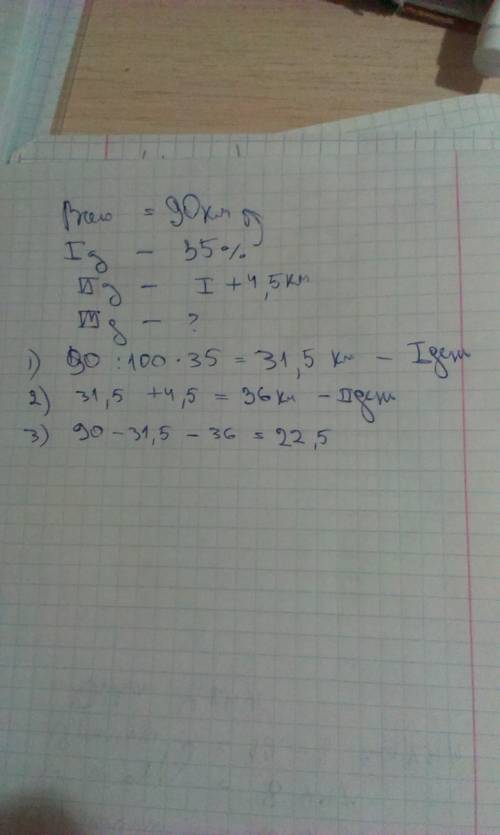 Всего = 90 км
I д - 35%
II д - I + 4,5 км
III д - ?
1) 90 : 100 · 35 = 31,5 км - I день
2) 31,5 + 4,5 = 36 км - II день
3) 90 - 31,5 - 36 = 22,5